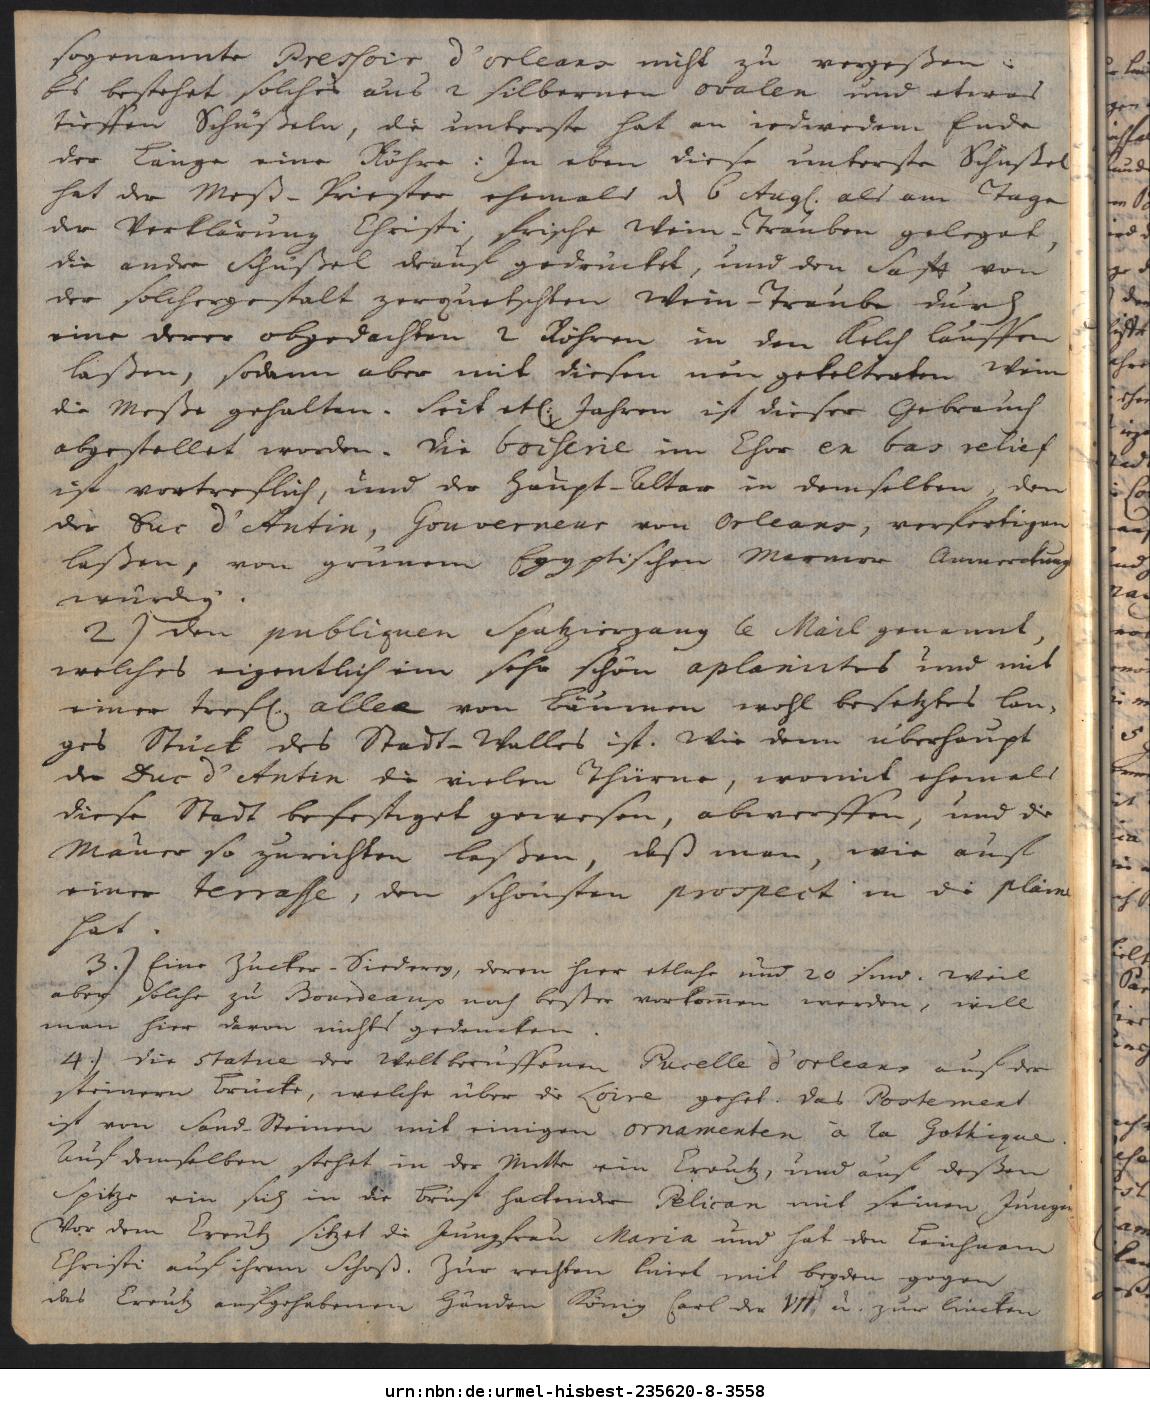 sogenannte Pressoir d'orleans nicht zu vergeßen:
Es bestehet solches aus 2 silbernen ovalen und etwas
tieffen Schüßeln, die unterste hat an iedwedem Ende
der Länge eine Röhre: In eben diese unterste Schüßel
hat der Meß-Priester ehemals d 6 Aug. als am Tage
der Verklärung Christi, frische Wein-Trauben geleget,
die andre Schüßel drauf gedrucket, und den Safft von
der solchergestalt zerquetschten Wein-Traube durch
eine derer obgedachten 2 Röhren in den Kelch lauffen
laßen, sodann aber mit diesen neu gekelterten Wein
die Meße gehalten. Seit etl. Jahren ist dieser Gebrauch
abgestellet worden. Die boiserie im Chor en bas relief
ist vortreflich, und der Haupt-Altar in demselben, den
der Duc d'Antin, Gouverneur von Orleans, verfertigen
laßen, von grünem Egyptischen Marmor Anmerckungs
würdig.
2) Den publiquen Spatziergang le Mail genannt,
welches eigentlich ein sehr schön aplanirtes und mit
einer trefl. allee von Bäumen wohl besetztes lan,
ges Stück des Stadt-Walles ist. Wie denn überhaupt
der Duc d'Antin die vielen Thürne, womit ehemals
diese Stadt befestiget gewesen, abwerffen, und die
Mauer so zurichten laßen, daß man, wie auf
einer terrasse, den schönsten prospect in die plaine
hat.
3.) Eine Zucker-Siederey, deren hier etliche und 20 sind. Weil
aber solche zu Bourdeaux noch beßer vorkommen werden, will
man hier davon nichts gedencken.
4.) Die statue der Weltberuffenen Pucelle d'orleans auf der
steinern Brücke, welche über die Loire gehet. Das Postement
ist von Sand-Steinen mit einigen ornamenten à la Gothique.
Auf demselben stehet in der Mitte ein Creutz, und auf deßen
Spitze ein sich in die Brust hackender Pelican mit seinen Jungen
Vor dem Creutz sitzet die Jungfrau Maria und hat den Leichnam
Christi auf ihrem Schoß. Zur rechten kniet mit beyden gegen
das Creutz aufgehabenen Händen König Carl der VII. u. zur lincken
urn:nbn:de:urmel-hisbest-235620-8-3558